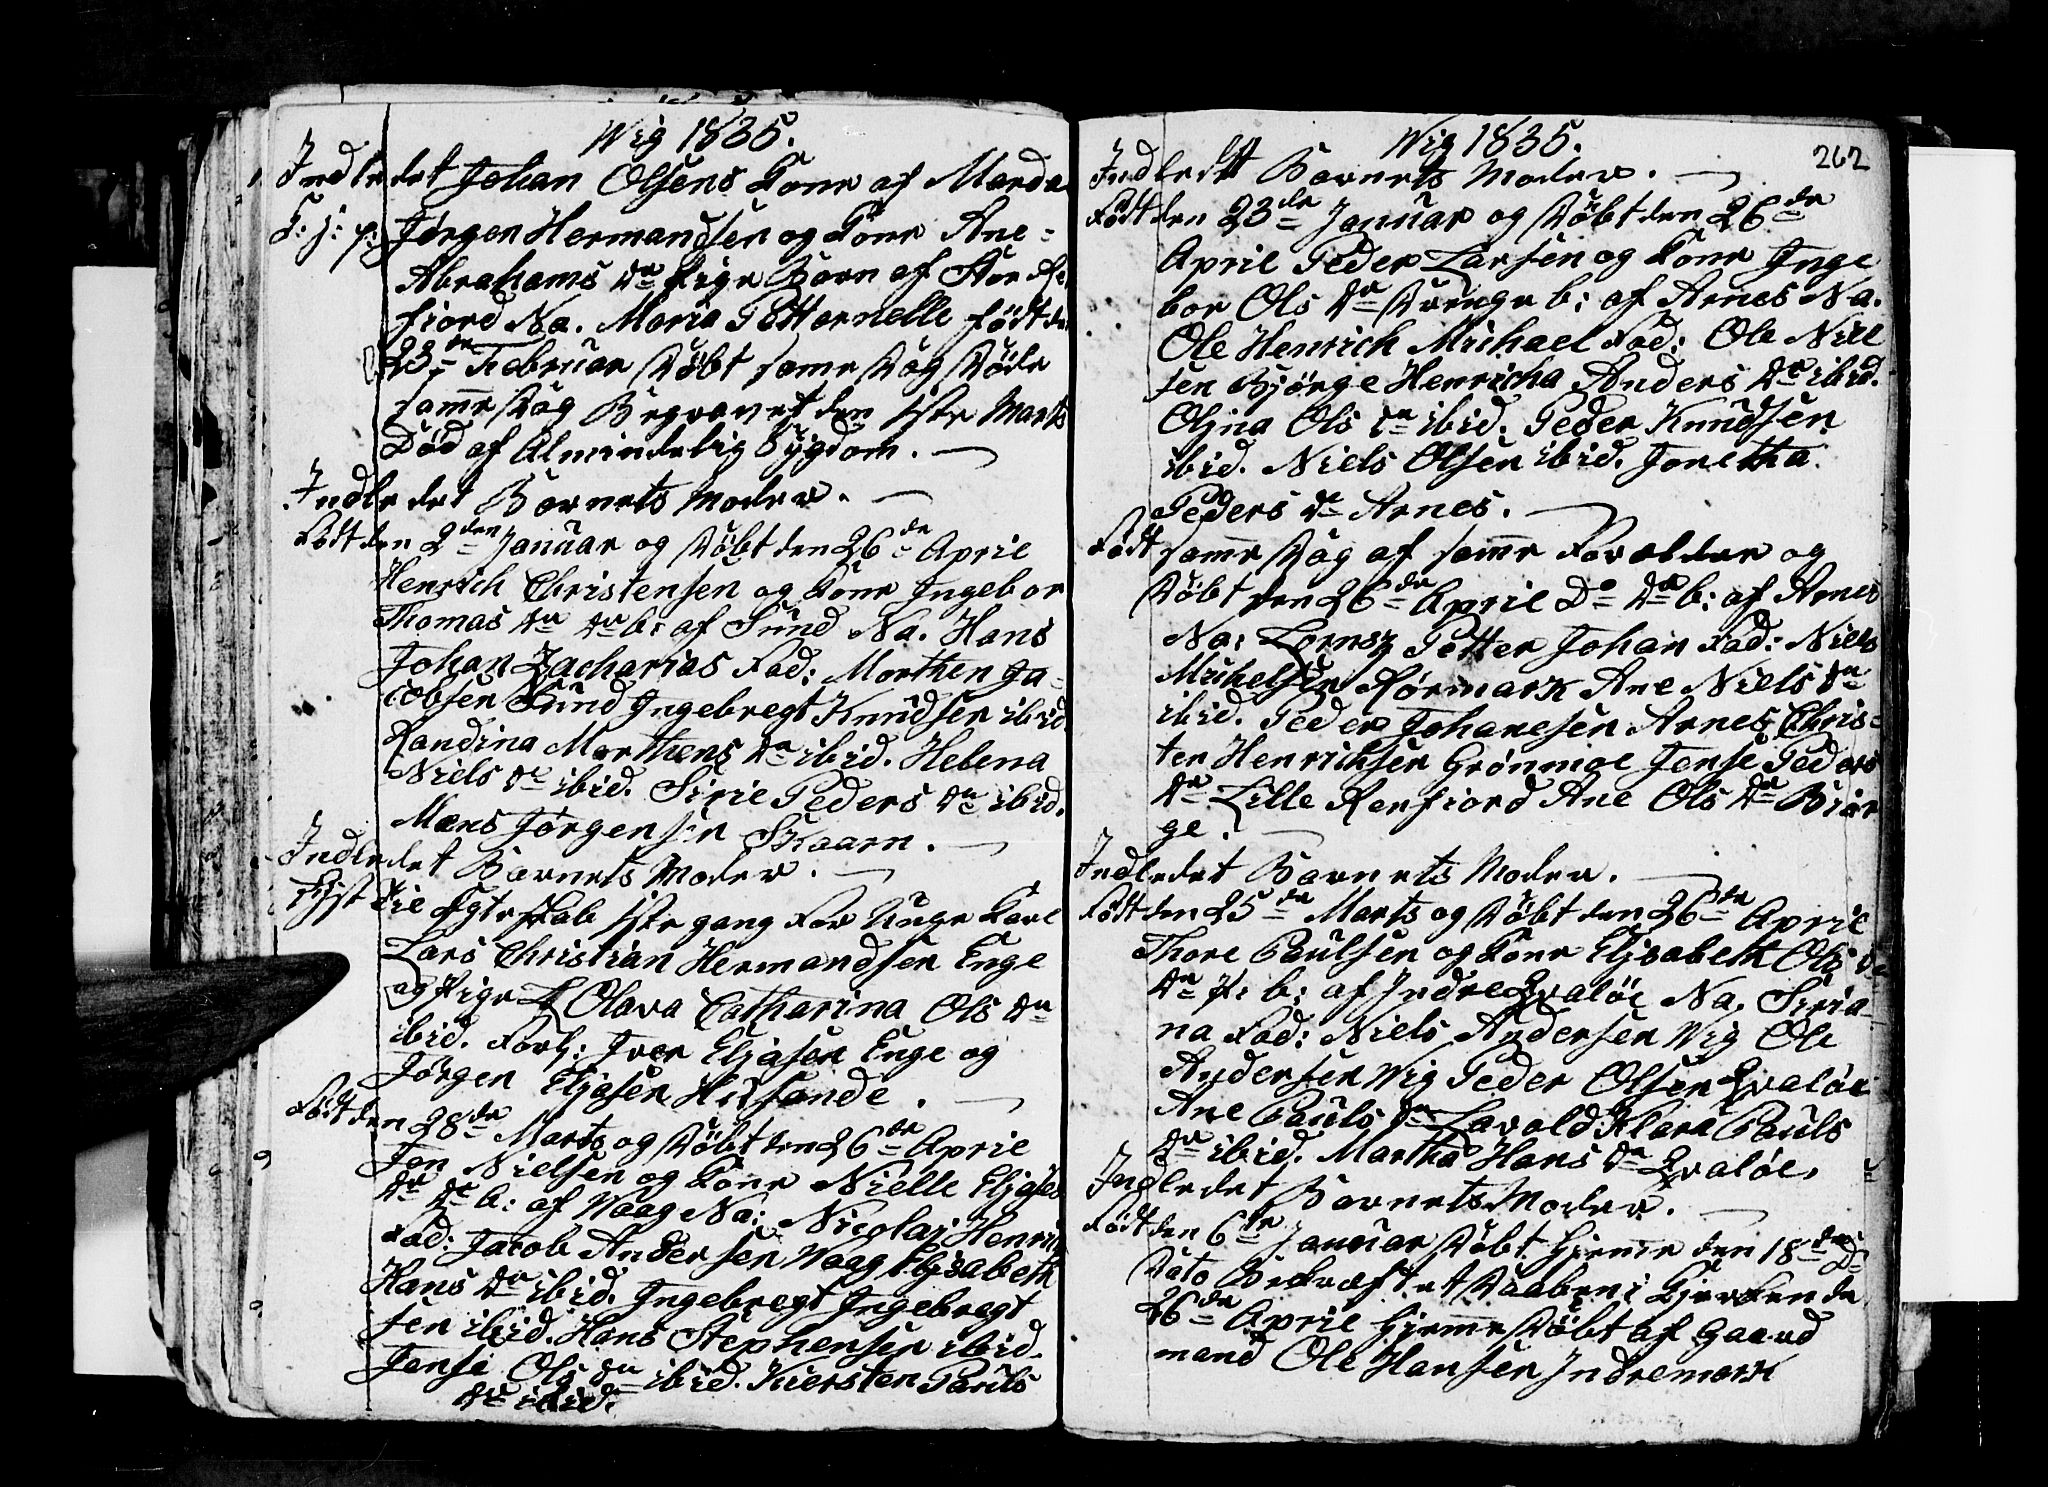 Wig 1835.
Indledet Johan Olsens Kone af Marda
F: j: p: Jørgen Hermandsen og Kone Ane-
Abrahams Dr Pige Barn af Stor Re
fiord Na. Maria Pettornelle født den
23de Februar Døbt same Dag Døde
same Dag Begravet den 1ste Marts
Død af Almindelig Sygdom. —
Indledet Barnets Moder. —
Født den 2den Januar og Døbt den 26de April
Henrich Christensen og Kone Ingebor
Thomas Dr Dr b: af Sund Na. Hans
Johan Zacharias Fad: Morthen Ja-
cobsen Sund Ingebregt Knudsen ibid.
Randina Morthens Dr ibid. Helena
Niels Dr ibid. Sirie Peders Dr ibid.
Mons Jørgensen Skaarn. —
Indledet Barnets Moder. —
Lyst Til Egteskab 1ste gang For Unge Karl
Lars Christian Hermandsen Enge
og Pige Olava Catharina Ols Dr
ibid. Forl: Iver Eljasen Enge og
Jørgen Eljasen Husande. —
Født den 28de Marts og Døbt den 26de April
Jon Nielsen og Kone Nielle Eljases
Dr Dr b: af Waag Na: Nicolai Henrich
Fad: Jacob Andersen Waag Eljsabeth
Hans Dr ibid. Ingebregt Ingebregt
sen ibid. Hans Stephensen ibid.
Jensi Ols Dr ibid. Kiersten Pauls
Dr ibid.
Wig 1835.
262
Indledt Barnets Moder. —
Født den 23de Januar og Døbt den 26de
April Peder Larsen og Kone Inge
bor Ols Dr Drenge b: af Arnes Na.
Ole Henrich Michael Fad: Ole Niel
sen Bjørge Henricha Anders Dr ibid.
Oljna Ols Dr ibid. Peder Knudsen
ibid. Niels Olsen ibid. Jonetha
Peders Dr Arnes. —
Født same Dag af same Forældre og
Døbt den 26de April Do Dr b: af Arnes
Na: Lornsz Petter Johan Fad: Niels
Michelsen Rørmark Ane Niels Dr
ibid. Peder Johanesen Arnes Chris-
ten Henrichsen Grønmoe Jensi Peders
Dr Lille Renfiord Ane Ols Dr Biør
ge. —
Indledet Barnets Moder. —
Født den 25de Marts og Døbt den 26de April
Thore Paulsen og Kone Eljsabeth Ols
Dr P: b: af Indre Qvaløe Na. Siria-
na Fad: Niels Andersen Wig Ole
Andersen Wig Peder Olsen Qvaløe
Ane Pauls Dr Lavold Klara Pauls
Dr ibid. Martha Hans Dr Qvaløe.
Indledet Barnets Moder. —
Født den 6te Januar Døbt Hjeme den 18de D:
Dato Bekræftet Daaben i Kjerken de
26de April Hjeme Døbt af Gaard
mand Ole Hansen Indremark